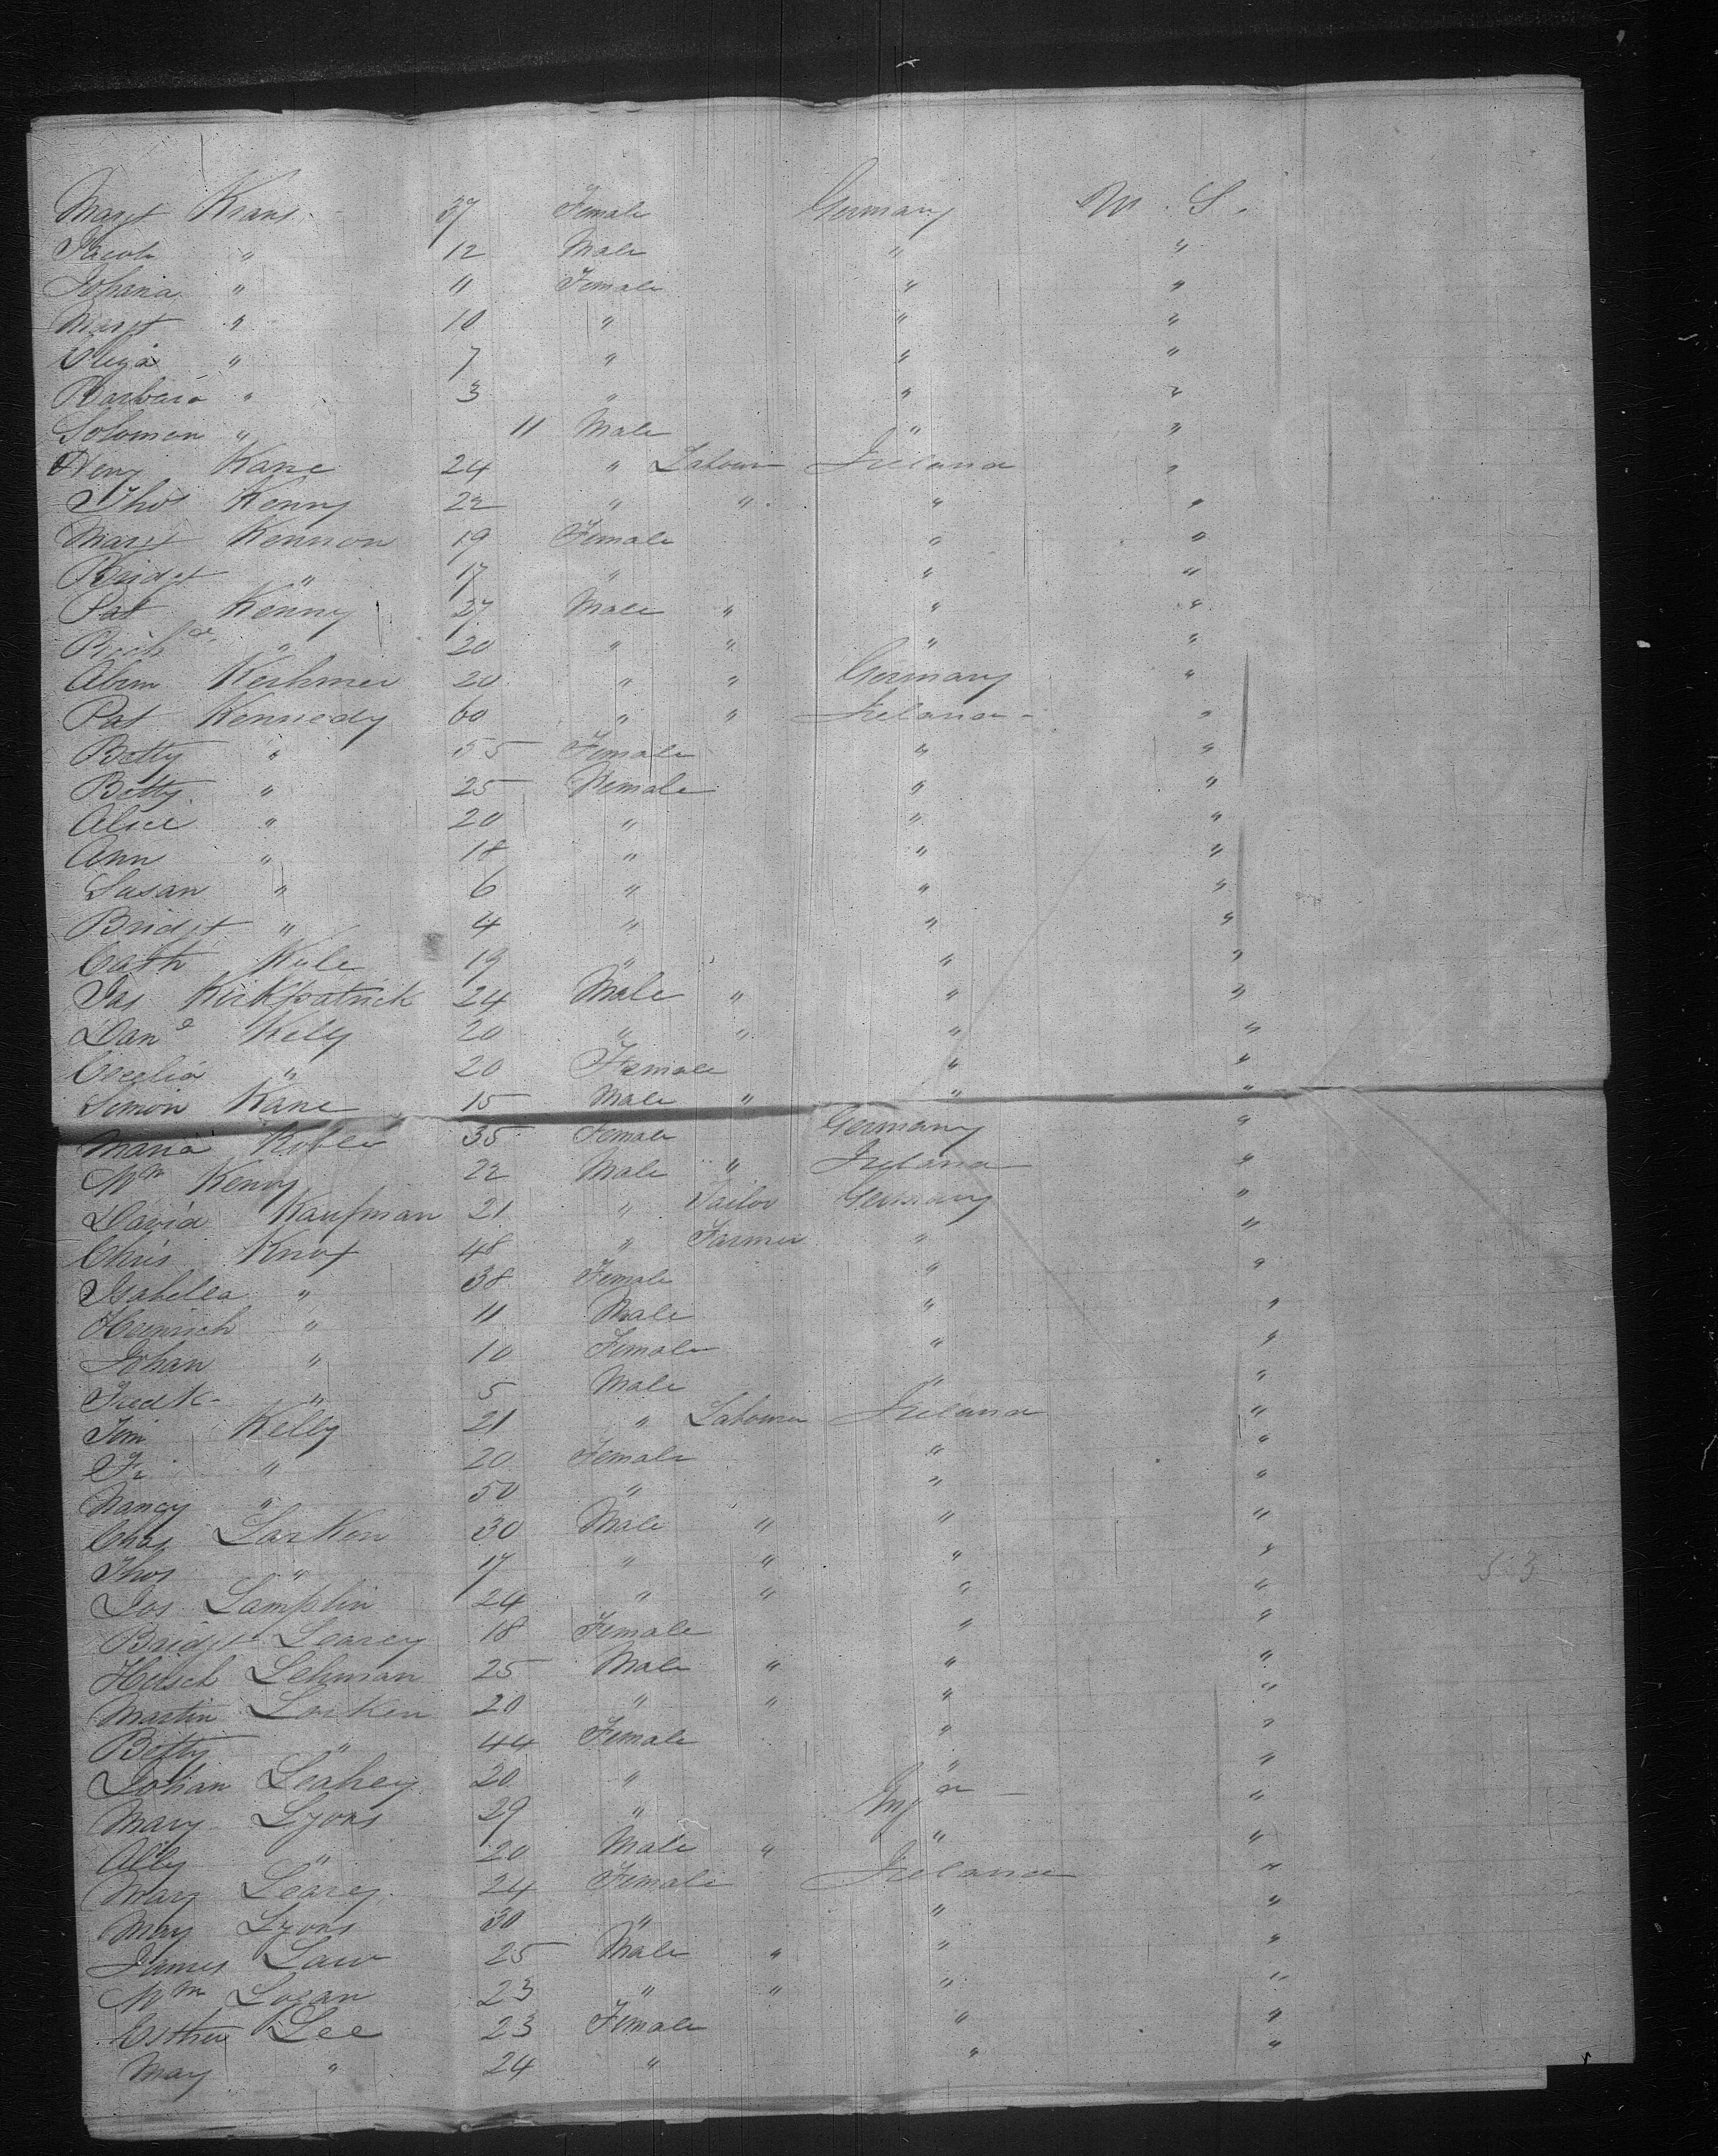 Margt Krans 37 Female Germany U. S.
Jacob " 12 Male " "
Johana " 11 Female " "
Margt " 10 " " "
" 7 " " "
Barbara " 3 " " "
Solomon " 11 Male " "
Heny Kane 24 " Labourer Ireland "
Thos Kenny 22 " " " "
Margt Kennon 19 Female " "
Bridget " 17 " " "
Pat Kenny 27 Male " " "
Richd " 20 " " " "
Abrm Kerhmer 20 " " Germany "
Pat Kennedy 60 " " Ireland "
Betty " 55 Female " "
Betty " 25 Female " "
Alice " 20 " " "
Ann " 18 " " "
Susan " 6 " " "
Bridget " 4 " " "
Cath Kyle 19 " " "
Jas Kirkpatrick 24 Male " " "
Danl Kelly 20 " " " "
Cecelia " 20 Female " "
Simon Kane 15 Male " " "
Maria 35 Female Germany "
Wm Kenny 22 Male " Ireland "
David Kaufman 21 " Tailor Germany "
Chris Knot 48 " Farmer " "
Isabella " 38 Female " "
Heinrich " 11 Male " "
Johan " 10 Female " "
Fredk " 5 Male " "
Jim Kelly 21 " Labourer Ireland "
" 20 Female " "
Nancy " 50 " " "
Chas Larken 30 Male " " "
Thos " 17 " " " "
Jos Lamplin 24 " " " "
Bridget Learey 18 Female " "
Hersch Lehman 25 Male " " "
Martin Larken 20 " " " "
Betty " 44 Female " "
Johan Leahey 20 " " "
Mary Lyons 29 " Engd "
Ally " 20 Male " " "
Mary Learey 24 Female Ireland "
May Lyons 30 " " "
James Law 25 Male " " "
Wm Logan 23 " " " "
Esther Lee 23 Female " "
May " 24 " " "
53